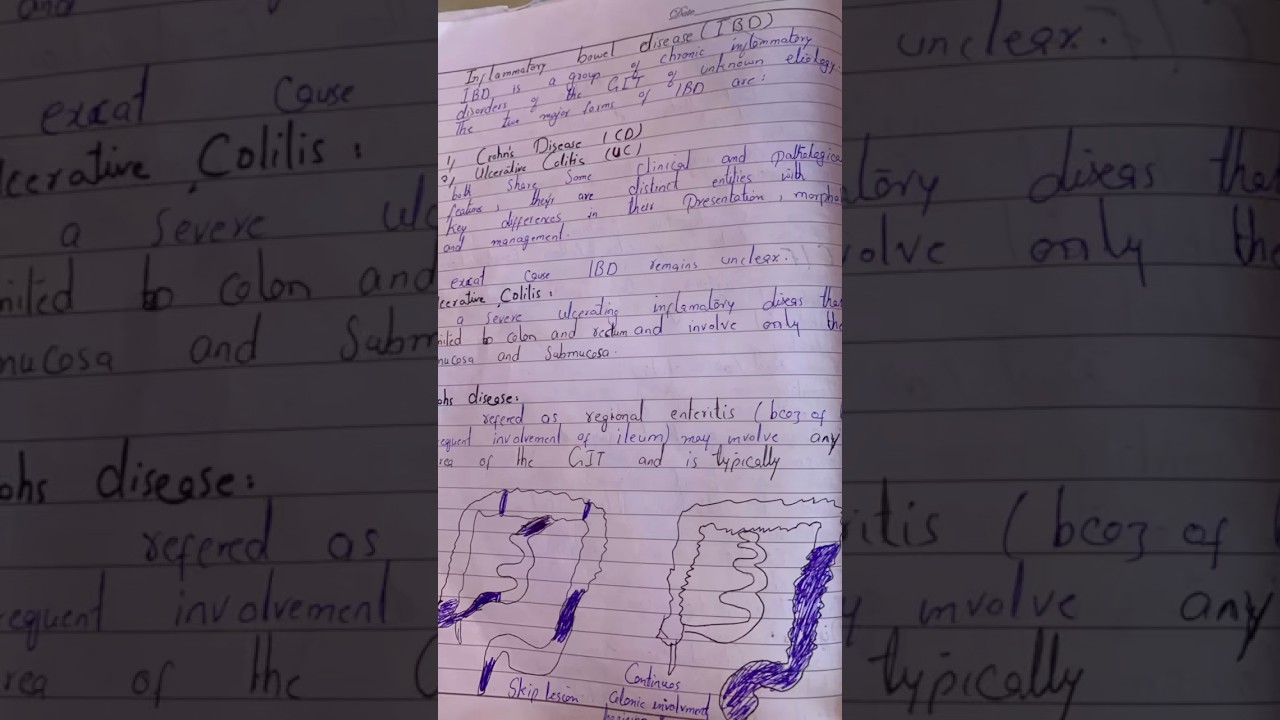 Date
Inflammatory bowel disease (IBD)
IBD is a group of chronic inflammatory
disorders of the GIT of unknown etiology.
The two major forms of IBD are:
1) Crohn's Disease (CD)
2) Ulcerative Colitis (UC)
both share some clinical and pathological
features, they are distinct entities with
key differences in their Presentation, morpho
and management.
exact cause IBD remains unclear.
lcerative Colitis:
a severe ulcerating inflamatory diseas tha
mited to colon and rectum and involve only the
mucosa and Submucosa.
ohs disease:
refered as regional enteritis (bcoz of
equent involvement of ileum) may involve any
rea of the GIT and is typically
Skip lesion
Continuos
Colonic involvment